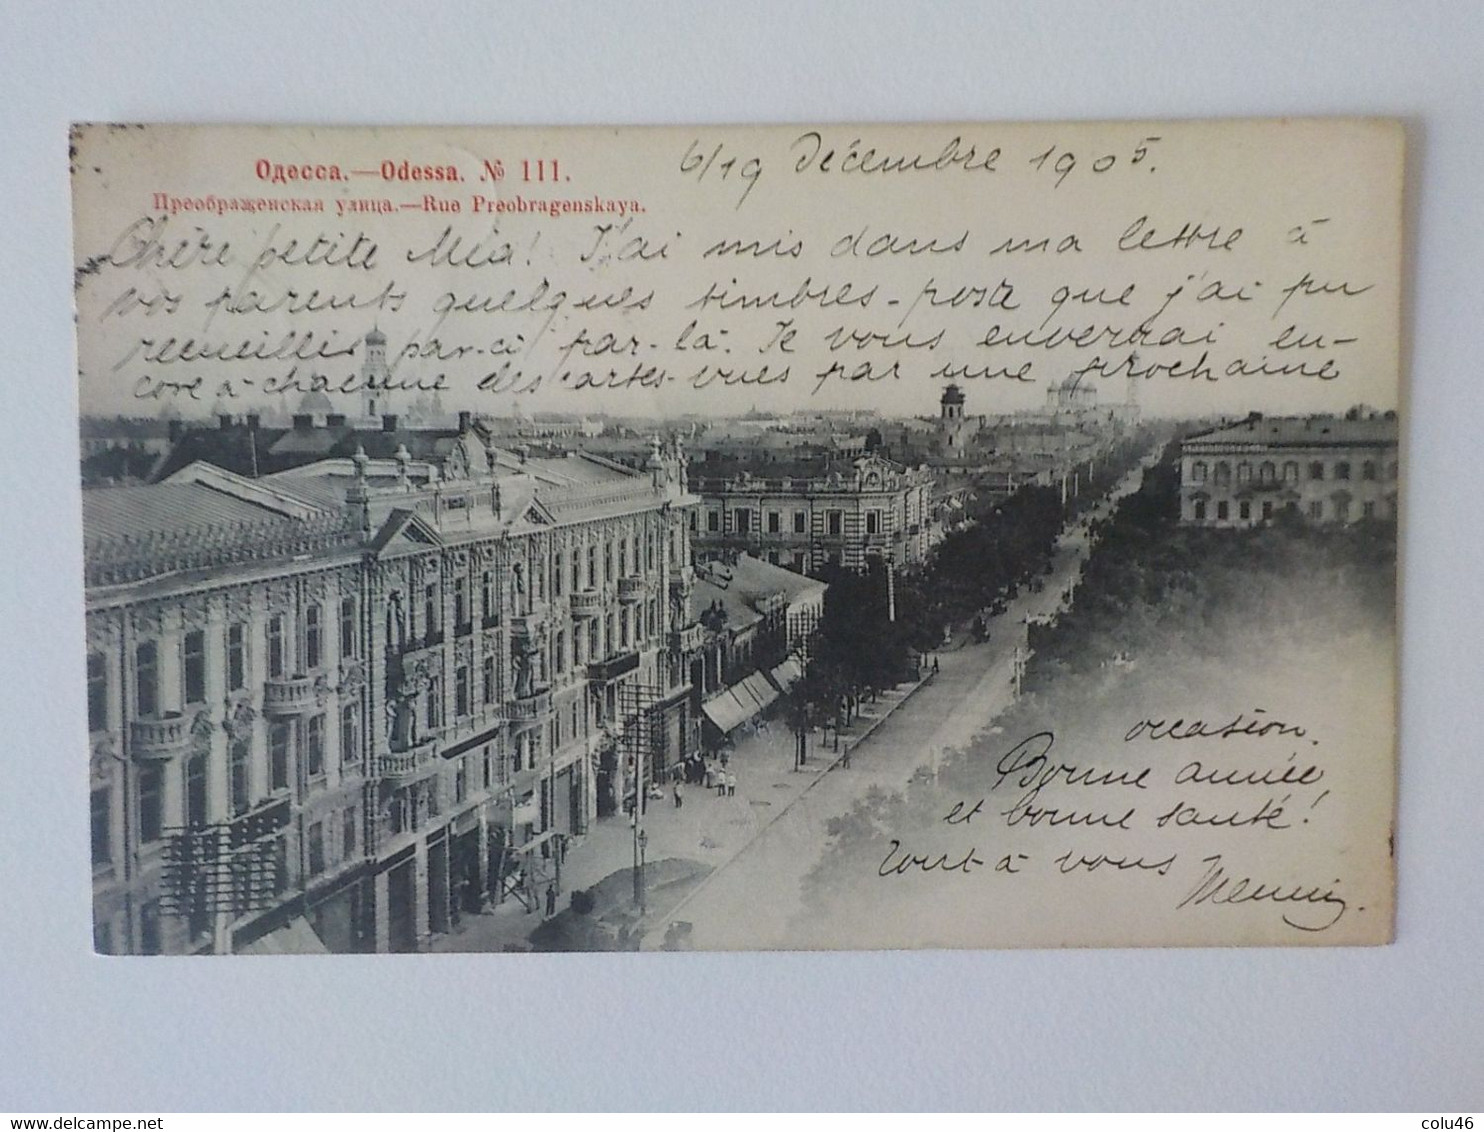 Одесса.—Odessa. № 111.
Преображенская улица.—Rue Preobragenskaya.
6/19 Décembre 1905.
Chère petite Mia! J'ai mis dans ma lettre à
vos parents quelques timbres-poste que j'ai pu
recueillir par-ci par-là. Je vous enverrai en-
core à chacune des cartes-vues par une prochaine
occasion.
Bonne année
et bonne santé!
Tout à vous
delcampe.net
colu46